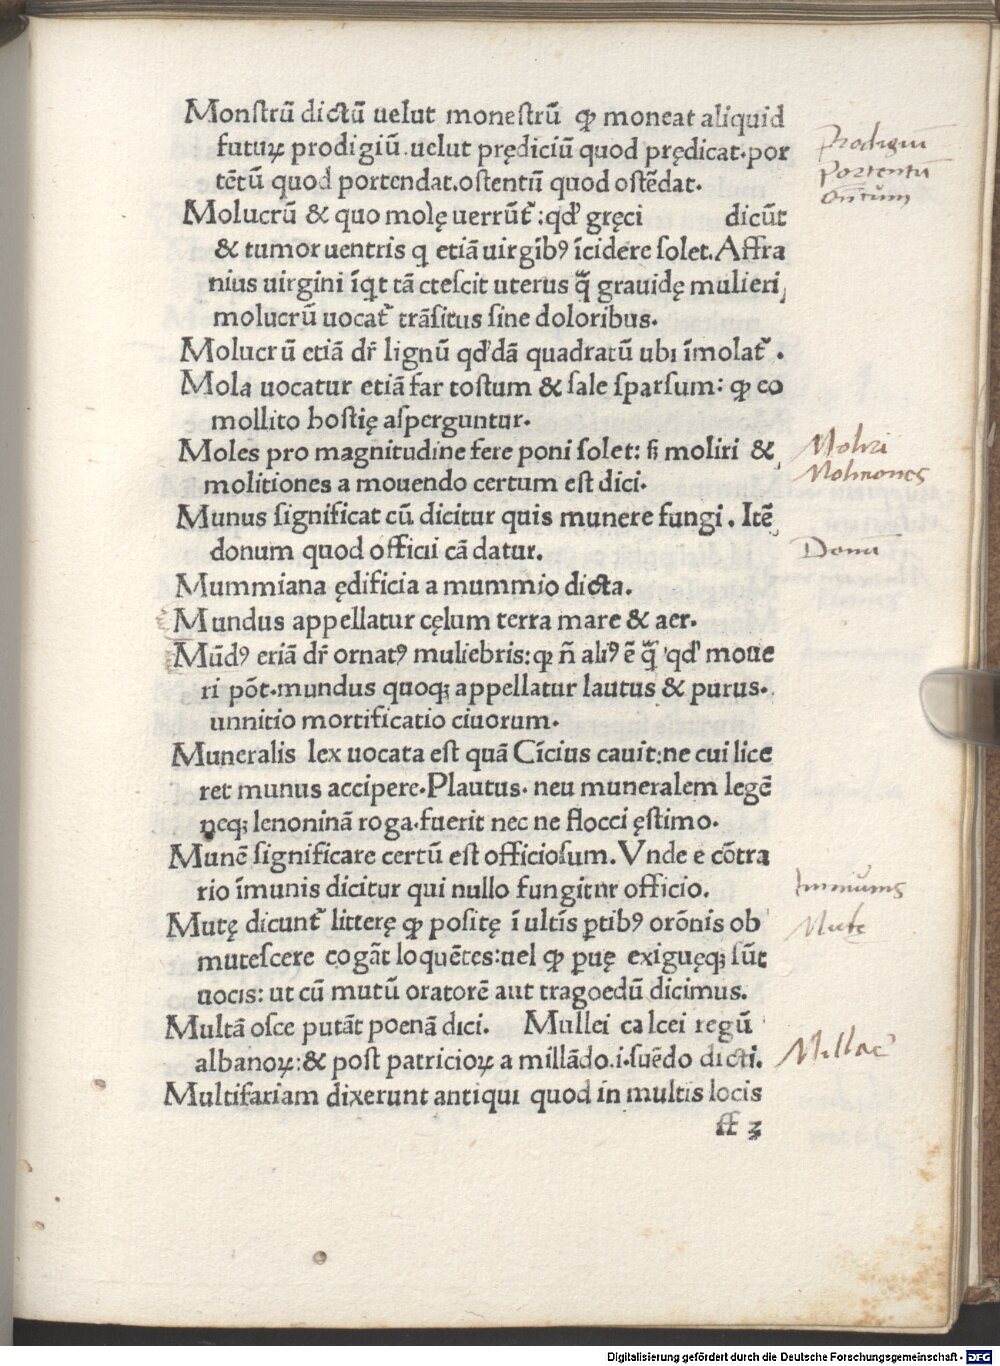 Monstrū dictū uelut monestrū ꝙ moneat aliquid
futuꝝ prodigiū.uelut prędiciū quod prędicat.por
tētū quod portendat.ostentū quod ostēdat.
Prodigiū
Portentū
Molucrū & quo molę uerrūt᷑:qd' gręci dicūt
& tumor uentris q etiā uirgibꝰ īcidere solet.Affra
nius uirgini īqt tā ctescit uterus q̄ grauidę mulieri
molucrū uocat᷑ trāsitus sine doloribus.
Molucrū etiā dr̄ lignū qd'dā quadratū ubi īmolat᷑.
Mola uocatur etiā far tostum & sale sparsum: ꝙ eo
mollito hostię asperguntur.
Moles pro magnitudine fere poni solet: s̄ moliri &
molitiones a mouendo certum est dici.
Moliri
Molitiones
Munus significat cū dicitur quis munere fungi. Itē
donum quod officii cā datur.
Donū
Mummiana ędificia a mummio dicta.
Mundus appellatur cęlum terra mare & aer.
Mūdꝰ eriā dr̄ ornatꝰ muliebris:ꝙ n̄ aliꝰ ē q̄ qd' moue
ri pōt.mundus quoqꝫ appellatur lautus & purus.
unnitio mortificatio ciuorum.
Muneralis lex uocata est quā Cīcius cauit:ne cui lice
ret munus accipere.Plautus. neu muneralem legē
neqꝫ lenoninā roga.fuerit nec ne flocci ęstimo.
Munē significare certū est officiosum.Vnde e cōtra
rio īmunis dicitur qui nullo fungitnr officio.
Immunis
Mutę dicunt᷑ litterę ꝙ positę ī ultīs ꝑtibꝰ orōnis ob
mutescere cogāt loquētes:uel ꝙ ꝑuę exiguęqꝫ sūt
uocis: ut cū mutū oratorē aut tragoedū dicimus.
Mutę
Multā osce putāt poenā dici. Mullei calcei regū
albanoꝝ:& post patricioꝝ a millādo.i.suēdo dicti.
Multifariam dixerunt antiqui quod in multis locis
ff 3
Digitalisierung gefördert durch die Deutsche Forschungsgemeinschaft - DFG